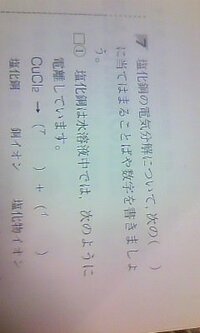 7 塩化銅の電気分解について,次の(　　)
に当てはまることばや数字を書きましょ
う。
□① 塩化銅は水溶液中では,次のように
電離しています。
CuCl2 → (ア　　) + (イ　　)
塩化銅　　銅イオン　　塩化物イオン